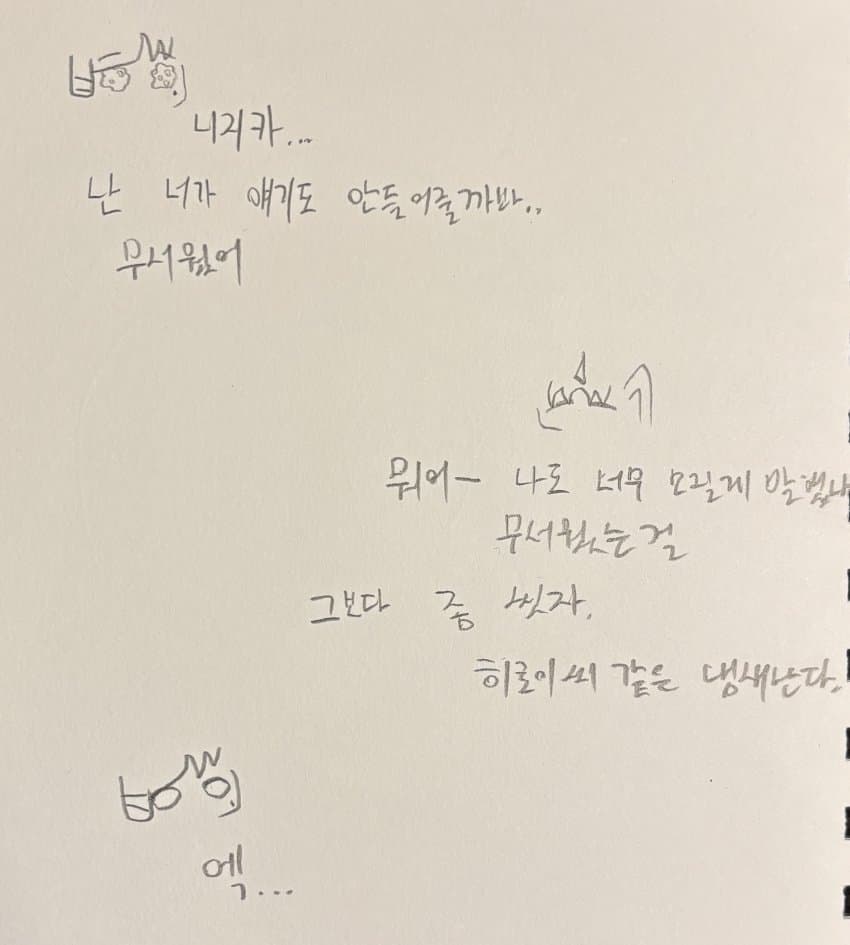 니리카...
난 너가 얘기도 안들어줄까봐..
무서웠어
뭐어ㅡ 나도 너무 모질게 말했나
무서웠는걸
그보다 좀 씻자.
히로이씨 같은 냄새난다.
엑...